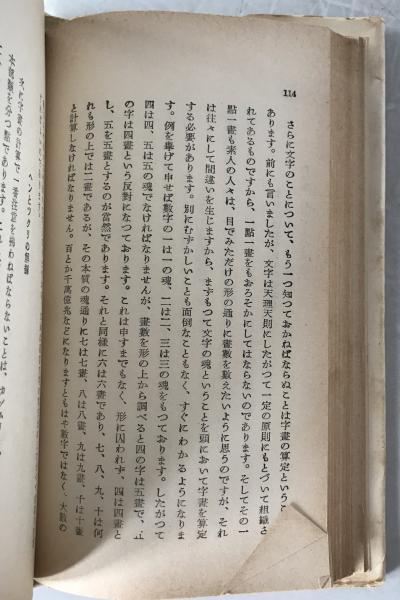 114
さらに文字のことについて、もう一つ知つておかねばならぬことは字畫の算定というこ
あります。前にも言いましたが、文字は天理天則にしたがつて一定の原則にもとづいて組織さ
れてあるものですから、一點一畫をもおろそかにしてはならないのであります。そしてその一
點一畫も素人の人々は、目でみただけの形の通りに畫數を数えたいように思うのですが、それ
は往々にして間違いを生じますから、まずもつて文字の魂ということを頭において字畫を算定
する必要があります。別にむずかしいことも面倒なこともなく、すぐにわかるようになりま
す。例を擧げて申せば數字の一は一の魂、二は二、三は三の魂をもつております。したがつて
四は四、五は五の魂でなければなりませんが、畫數を形の上から調べると四の字は五畫で、五
の字は四畫という反對になつております。これは申すまでもなく、形に囚われず、四は四畫と
し、五を五畫とするのが當然であります。それと同樣に六は六畫であり、七、八、九、十は何
れも形の上では二畫であるが、その本質の魂通りに七は七畫、八は八畫、九は九畫、十は十畫
と計算しなければなりません。百とか千萬億兆などになりますともはや數字ではなく、大數の
ヘンとツクリの無韻
次に字畫の計算で一番注意を拂わねばならないことは、